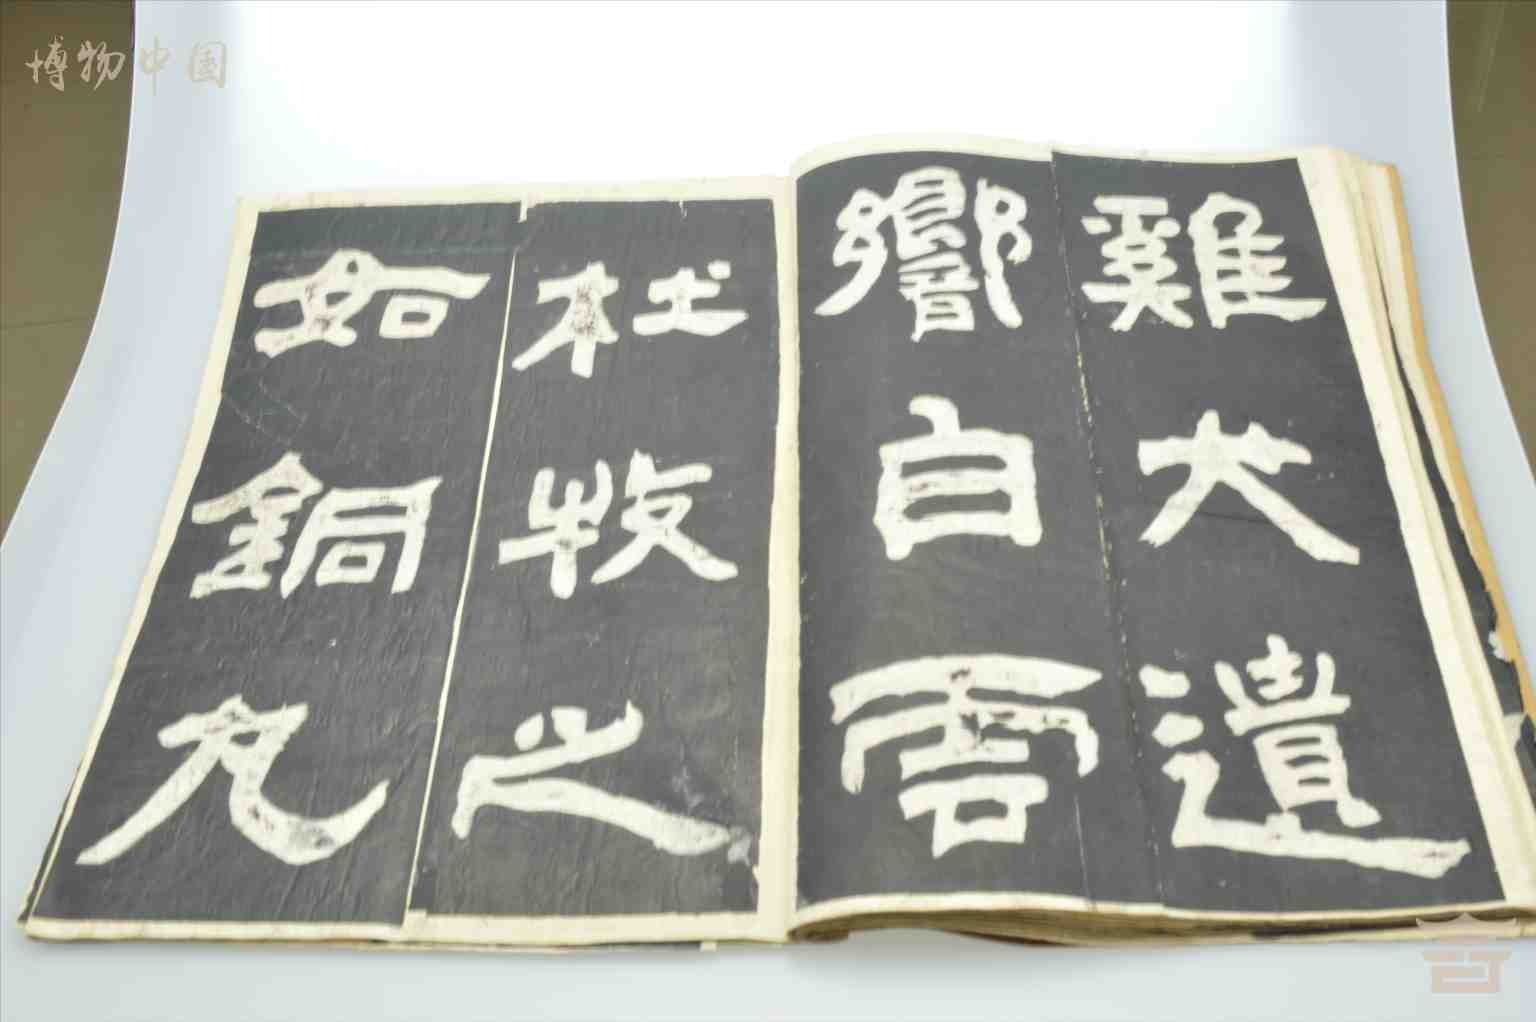 博物中国
雞犬遺
響白雲
杜牧之
如銅丸